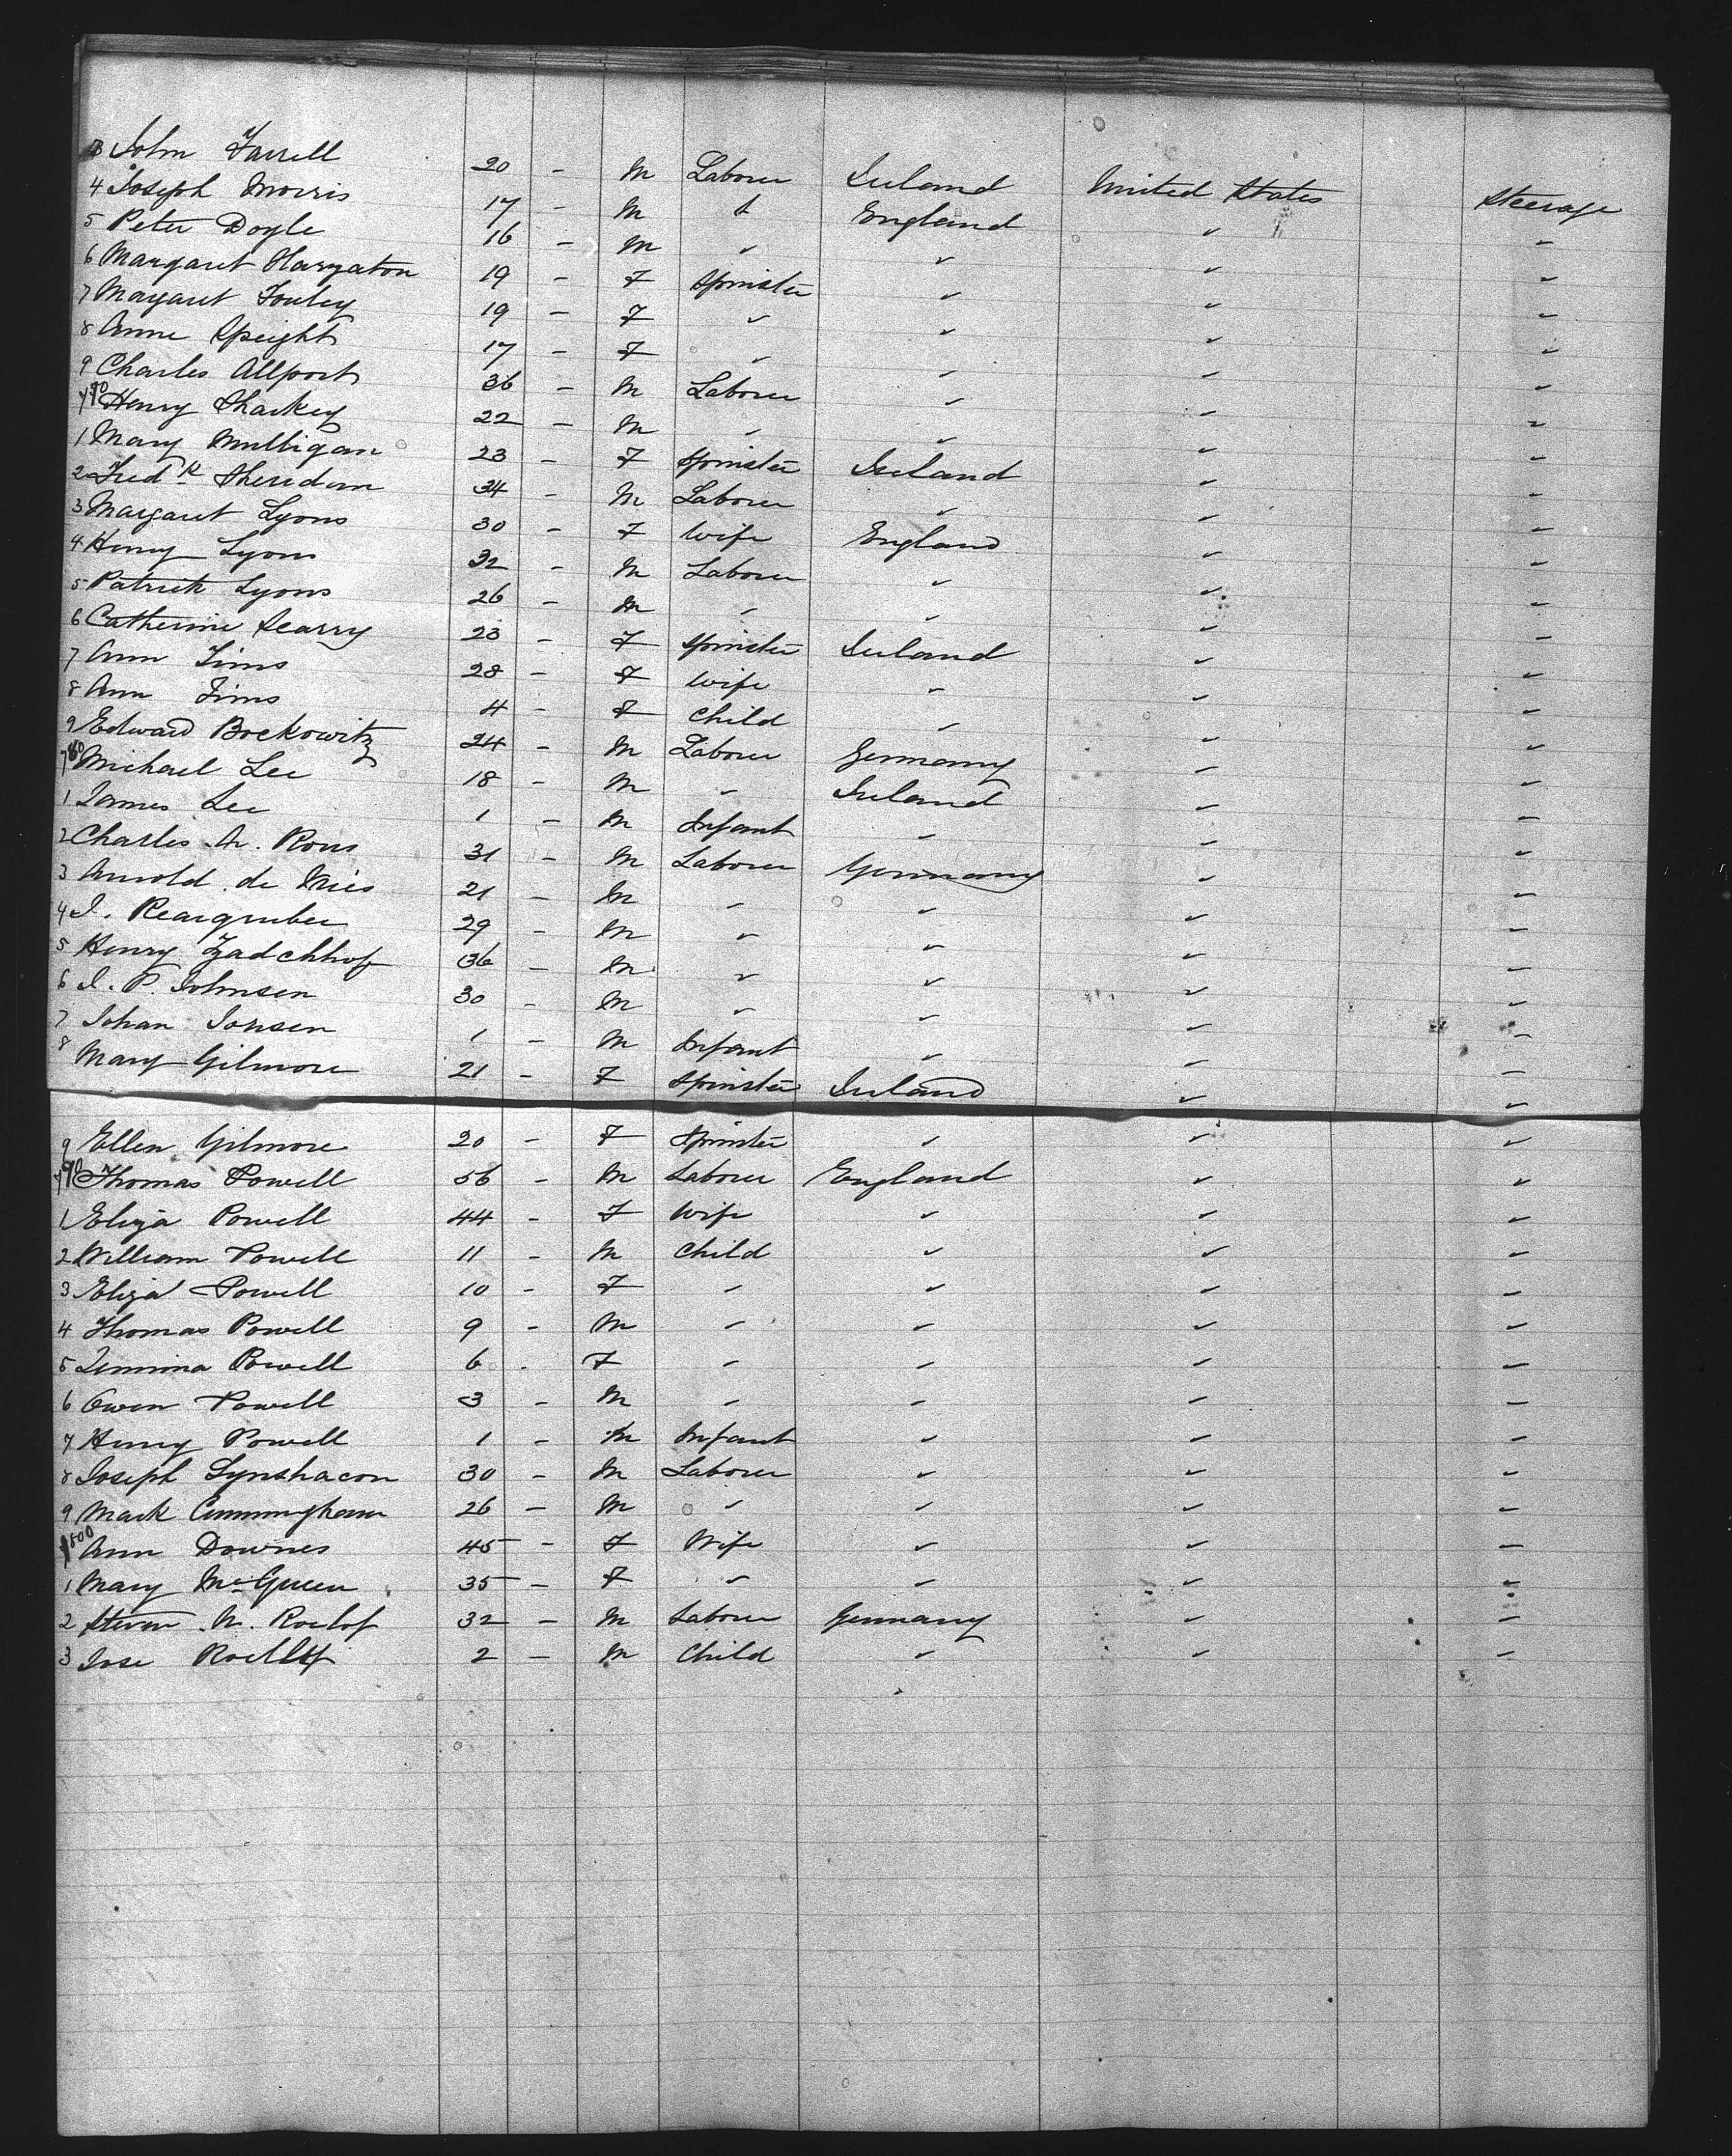 3 John Farrell 20 - M Laborer Ireland United States Steerage
4 Joseph Morris 17 - M " England " "
5 Peter Doyle 16 - M " " " "
6 Margaret Hargaton 19 - F Spinster " " "
7 Margaret Fouley 19 - F " " " "
8 Anne Speight 17 - F " " " "
9 Charles Allport 36 - M Laborer " " "
770 Henry Sharkey 22 - M " " " "
1 Mary Mulligan 23 - F Spinster Ireland " "
2 Fredk Sheridan 34 - M Laborer " " "
3 Margaret Lyons 30 - F Wife England " "
4 Henry Lyons 32 - M Laborer " " "
5 Patrick Lyons 26 - M " " " "
6 Catherine Scarry 23 - F Spinster Ireland " "
7 Ann Tims 28 - F Wife " " "
8 Ann Tims 4 - F Child " " "
9 Edward Bockowitz 24 - M Laborer Germany " "
780 Michael Lee 18 - M " Ireland " "
1 James Lee 1 - M Infant " " "
2 Charles A. Rous 31 - M Laborer Germany " "
3 Arnold de Vries 21 - M " " " "
4 I. Reargruber 29 - M " " " "
5 Henry Zadchhof 36 - M " " " "
6 I. P. Johnsen 30 - M " " " "
7 Johan Jonsen 1 - M Infant " " "
8 Mary Gilmore 21 - F Spinster Ireland " "
9 Ellen Gilmore 20 - F Spinster " " "
790 Thomas Powell 56 - M Laborer England " "
1 Eliza Powell 44 - F Wife " " "
2 William Powell 11 - M Child " " "
3 Eliza Powell 10 - F " " " "
4 Thomas Powell 9 - M " " " "
5 Jemima Powell 6 - F " " " "
6 Owen Powell 3 - M " " " "
7 Henry Powell 1 - M Infant " " "
8 Joseph Lynshacon 30 - M Laborer " " "
9 Mark Cunningham 26 - M " " " "
800 Ann Downes 45 - F Wife " " "
1 Mary McGueen 35 - F " " " "
2 Steven N. Roelof 32 - M Laborer Germany " "
3 Jose Roelof 2 - M Child " " "